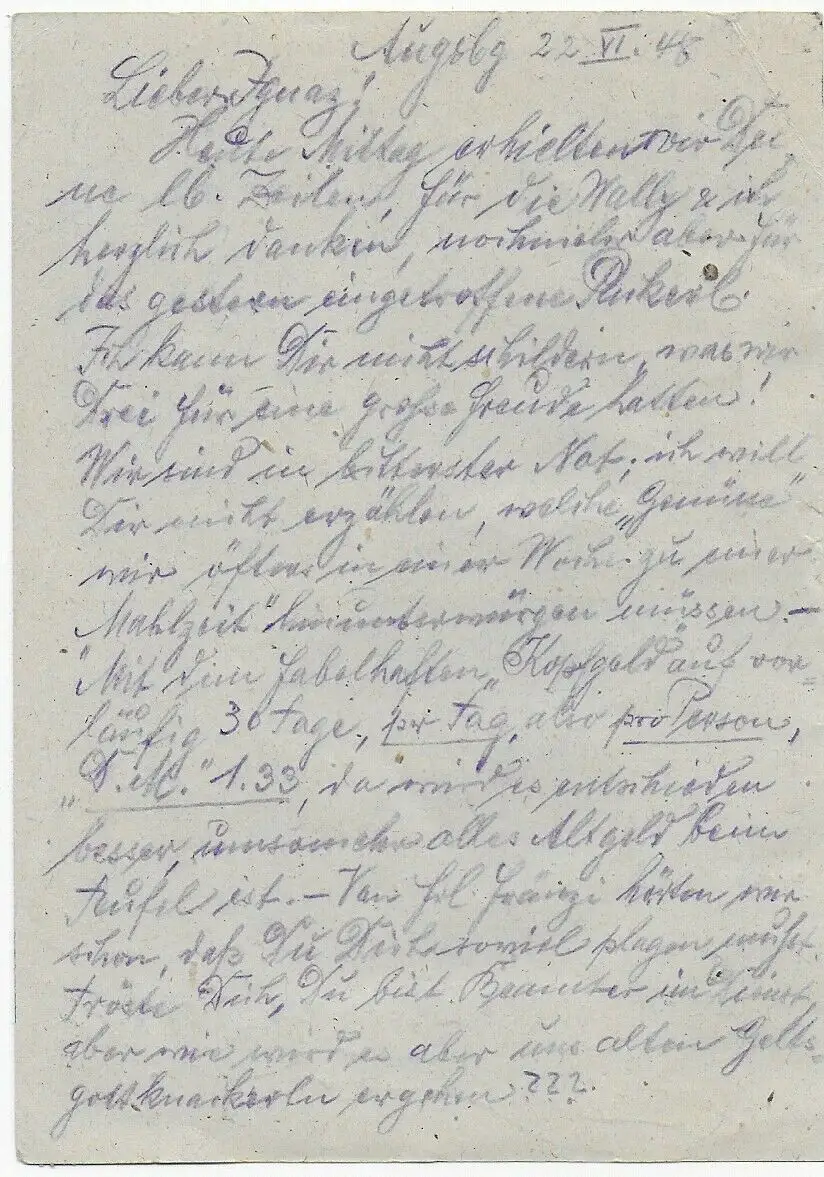 Augsbg 22 VI. 48
Lieber Ignaz!
Heute Mittag erhielten wir Dei
ne lb. Zeilen, für die Wally & ich
herzlich danken, nochmehr aber für
das gestern eingetroffene Pakerl.
Ich kann Dir nicht schildern, was wir
Drei für eine große Freude hatten!
Wir sind in bitterster Not, ich will
Dir nicht erzählen, welche „Genüße"
wir öfters in einer Woche zu einer
„Mahlzeit" hinunterwürgen müssen. –
Mit dem fabelhaften „Kopfgeld" auf vor-
läufig 30 Tage, pr Tag, also pro Person,
„D.M." 1.33, da wird es entschieden
besser, umsomehr alles Altgeld beim
Teufel ist. – Von Frl. Fränzi hörten wir
schon, daß Du Dich soviel plagen mußt.
Tröste Dich, Du bist Beamter im Dienst,
aber wie wird es aber uns alten Gelts-
gottknackerln ergehen ???.